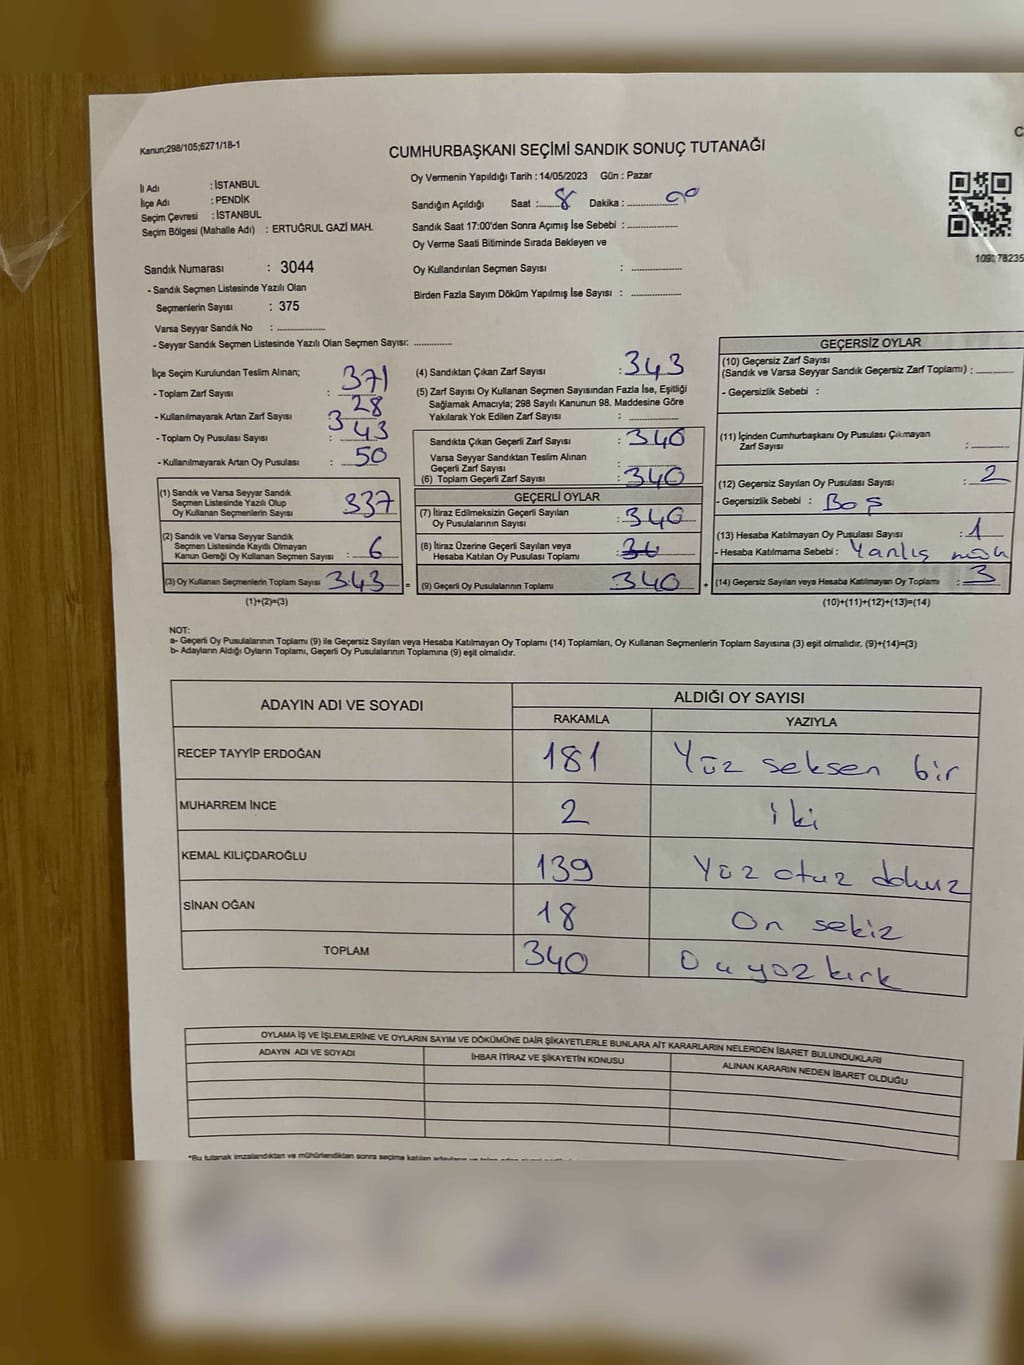 Kanun;298/105;6271/18-1
CUMHURBAŞKANI SEÇİMİ SANDIK SONUÇ TUTANAĞI
İl Adı : İSTANBUL
İlçe Adı : PENDİK
Seçim Çevresi : İSTANBUL
Seçim Bölgesi (Mahalle Adı) : ERTUĞRUL GAZİ MAH.
Sandık Numarası : 3044
- Sandık Seçmen Listesinde Yazılı Olan
Seçmenlerin Sayısı : 375
Varsa Seyyar Sandık No : ..............
- Seyyar Sandık Seçmen Listesinde Yazılı Olan Seçmen Sayısı: ............
Oy Vermenin Yapıldığı Tarih : 14/05/2023 Gün : Pazar
Sandığın Açıldığı Saat : 8 Dakika :
Sandık Saat 17:00'den Sonra Açımış İse Sebebi : ..............
Oy Verme Saati Bitiminde Sırada Bekleyen ve
Oy Kullandırılan Seçmen Sayısı : ..............
Birden Fazla Sayım Döküm Yapılmış İse Sayısı : ..............
İlçe Seçim Kurulundan Teslim Alınan;
- Toplam Zarf Sayısı : 371
- Kullanılmayarak Artan Zarf Sayısı : 28
- Toplam Oy Pusulası Sayısı : 343
- Kullanılmayarak Artan Oy Pusulası : 50
(1) Sandık ve Varsa Seyyar Sandık
Seçmen Listesinde Yazılı Olup
Oy Kullanan Seçmenlerin Sayısı 337
(2) Sandık ve Varsa Seyyar Sandık
Seçmen Listesinde Kayıtlı Olmayan
Kanun Gereği Oy Kullanan Seçmen Sayısı : 6
(3) Oy Kullanan Seçmenlerin Toplam Sayısı 343 =
(1)+(2)=(3)
(4) Sandıktan Çıkan Zarf Sayısı : 343
(5) Zarf Sayısı Oy Kullanan Seçmen Sayısından Fazla İse, Eşitliği
Sağlamak Amacıyla; 298 Sayılı Kanunun 98. Maddesine Göre
Yakılarak Yok Edilen Zarf Sayısı : ..............
Sandıkta Çıkan Geçerli Zarf Sayısı : 340
Varsa Seyyar Sandıktan Teslim Alınan
Geçerli Zarf Sayısı :
(6) Toplam Geçerli Zarf Sayısı : 340
GEÇERLİ OYLAR
(7) İtiraz Edilmeksizin Geçerli Sayılan
Oy Pusulalarının Sayısı : 340
(8) İtiraz Üzerine Geçerli Sayılan veya
Hesaba Katılan Oy Pusulaları Toplamı :
(9) Geçerli Oy Pusulalarının Toplamı 340 +
GEÇERSİZ OYLAR
(10) Geçersiz Zarf Sayısı
(Sandık ve Varsa Seyyar Sandık Geçersiz Zarf Toplamı) : ............
- Geçersizlik Sebebi :
(11) İçinden Cumhurbaşkanı Oy Pusulası Çıkmayan
Zarf Sayısı : ............
(12) Geçersiz Sayılan Oy Pusulası Sayısı : 2
- Geçersizlik Sebebi : Boş
(13) Hesaba Katılmayan Oy Pusulası Sayısı : 1
- Hesaba Katılmama Sebebi : Yanlış
(14) Geçersiz Sayılan veya Hesaba Katılmayan Oy Toplamı : 3
(10)+(11)+(12)+(13)=(14)
NOT:
a- Geçerli Oy Pusulalarının Toplamı (9) ile Geçersiz Sayılan veya Hesaba Katılmayan Oy Toplamı (14) Toplamları, Oy Kullanan Seçmenlerin Toplam Sayısına (3) eşit olmalıdır. (9)+(14)=(3)
b- Adayların Aldığı Oyların Toplamı, Geçerli Oy Pusulalarının Toplamına (9) eşit olmalıdır.
ADAYIN ADI VE SOYADI ALDIĞI OY SAYISI
RAKAMLA YAZIYLA
RECEP TAYYİP ERDOĞAN 181 Yüz seksen bir
MUHARREM İNCE 2 iki
KEMAL KILIÇDAROĞLU 139 Yüz otuz dokuz
SİNAN OĞAN 18 On sekiz
TOPLAM 340
OYLAMA İŞ VE İŞLEMLERİNE VE OYLARIN SAYIM VE DÖKÜMÜNE DAİR ŞİKAYETLERLE BUNLARA AİT KARARLARIN NELERDEN İBARET BULUNDUKLARI
ADAYIN ADI VE SOYADI İHBAR İTİRAZ VE ŞİKAYETİN KONUSU ALINAN KARARIN NEDEN İBARET OLDUĞU
*Bu tutanak imzalandıktan ve mühürlendikten sonra seçime katılan